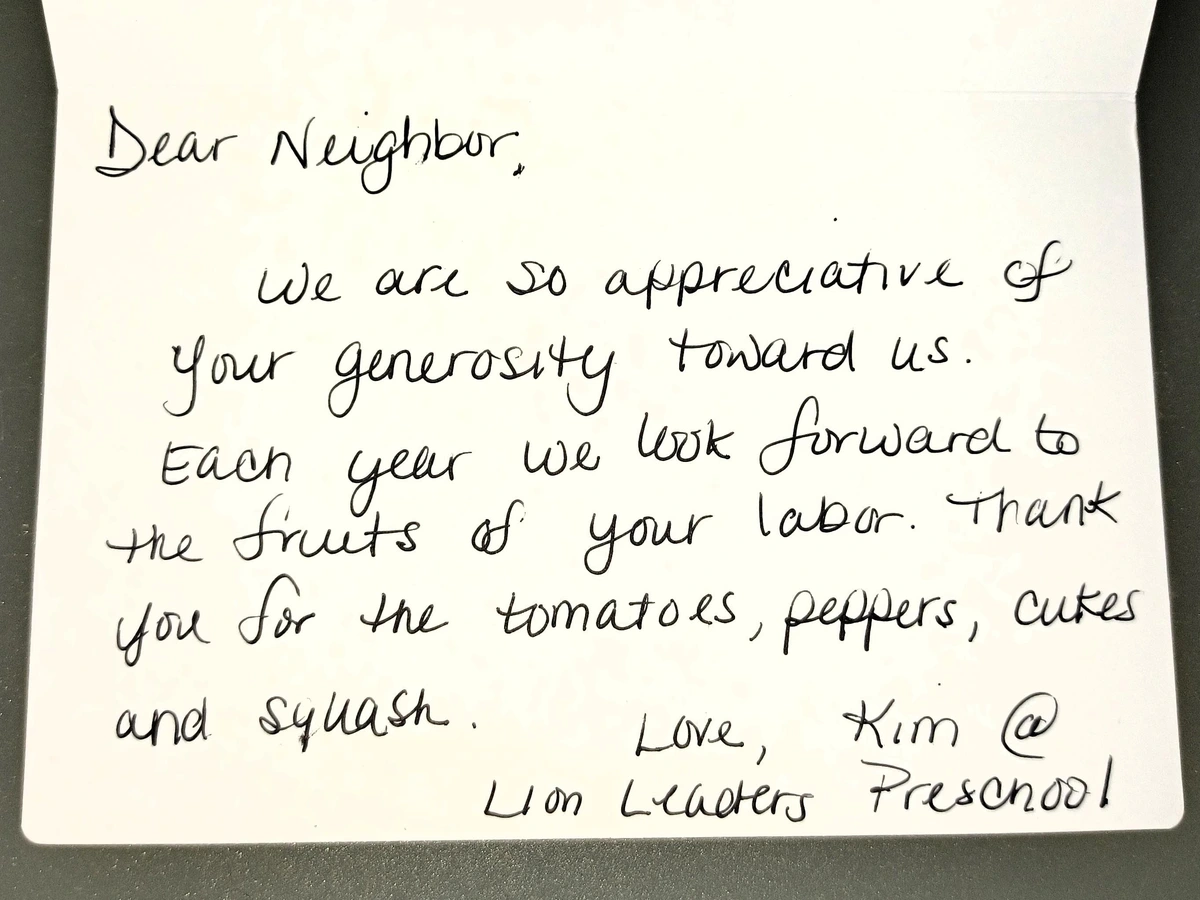 Dear Neighbor,
We are so appreciative of
your generosity toward us.
Each year we look forward to
the fruits of your labor. Thank
you for the tomatoes, peppers, cukes
and squash.
Love, Kim @
Lion Leaders Preschool